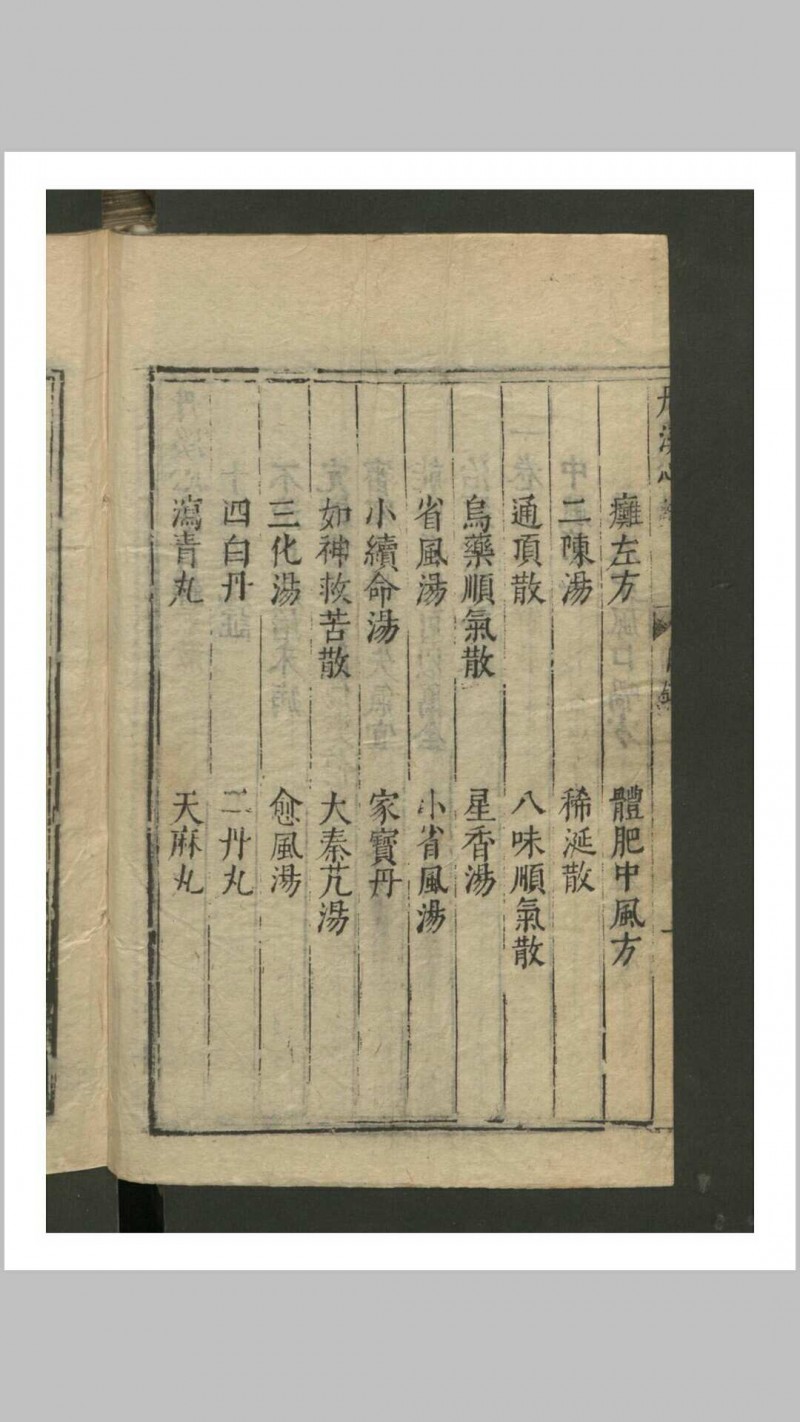 癱左方 體肥中風方
二陳湯 稀涎散
通頂散 八味順氣散
烏藥順氣散 星香湯
省風湯 小省風湯
小續命湯 家寶丹
如神救苦散 大秦艽湯
三化湯 愈風湯
四白丹 二丹丸
瀉青丸 天麻丸